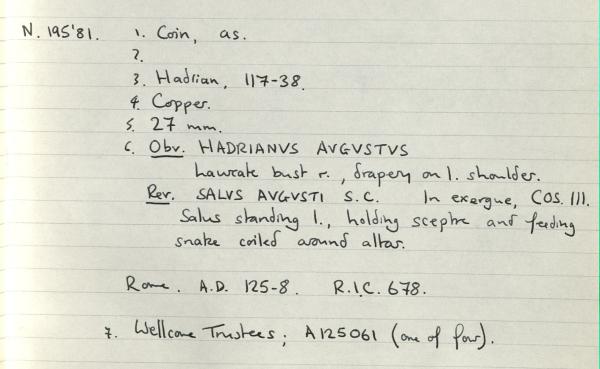 N. 195'81. 1. Coin, as.
2.
3. Hadrian, 117-38.
4. Copper.
5. 27 mm.
6. Obv. HADRIANVS AVGVSTVS
Laureate bust r., drapery on l. shoulder.
Rev. SALVS AVGVSTI S.C. In exergue, COS. III.
Salus standing l., holding sceptre and feeding
snake coiled around altar.
Rome. A.D. 125-8. R.I.C. 678.
7. Wellcome Trustees; A125061 (one of four).